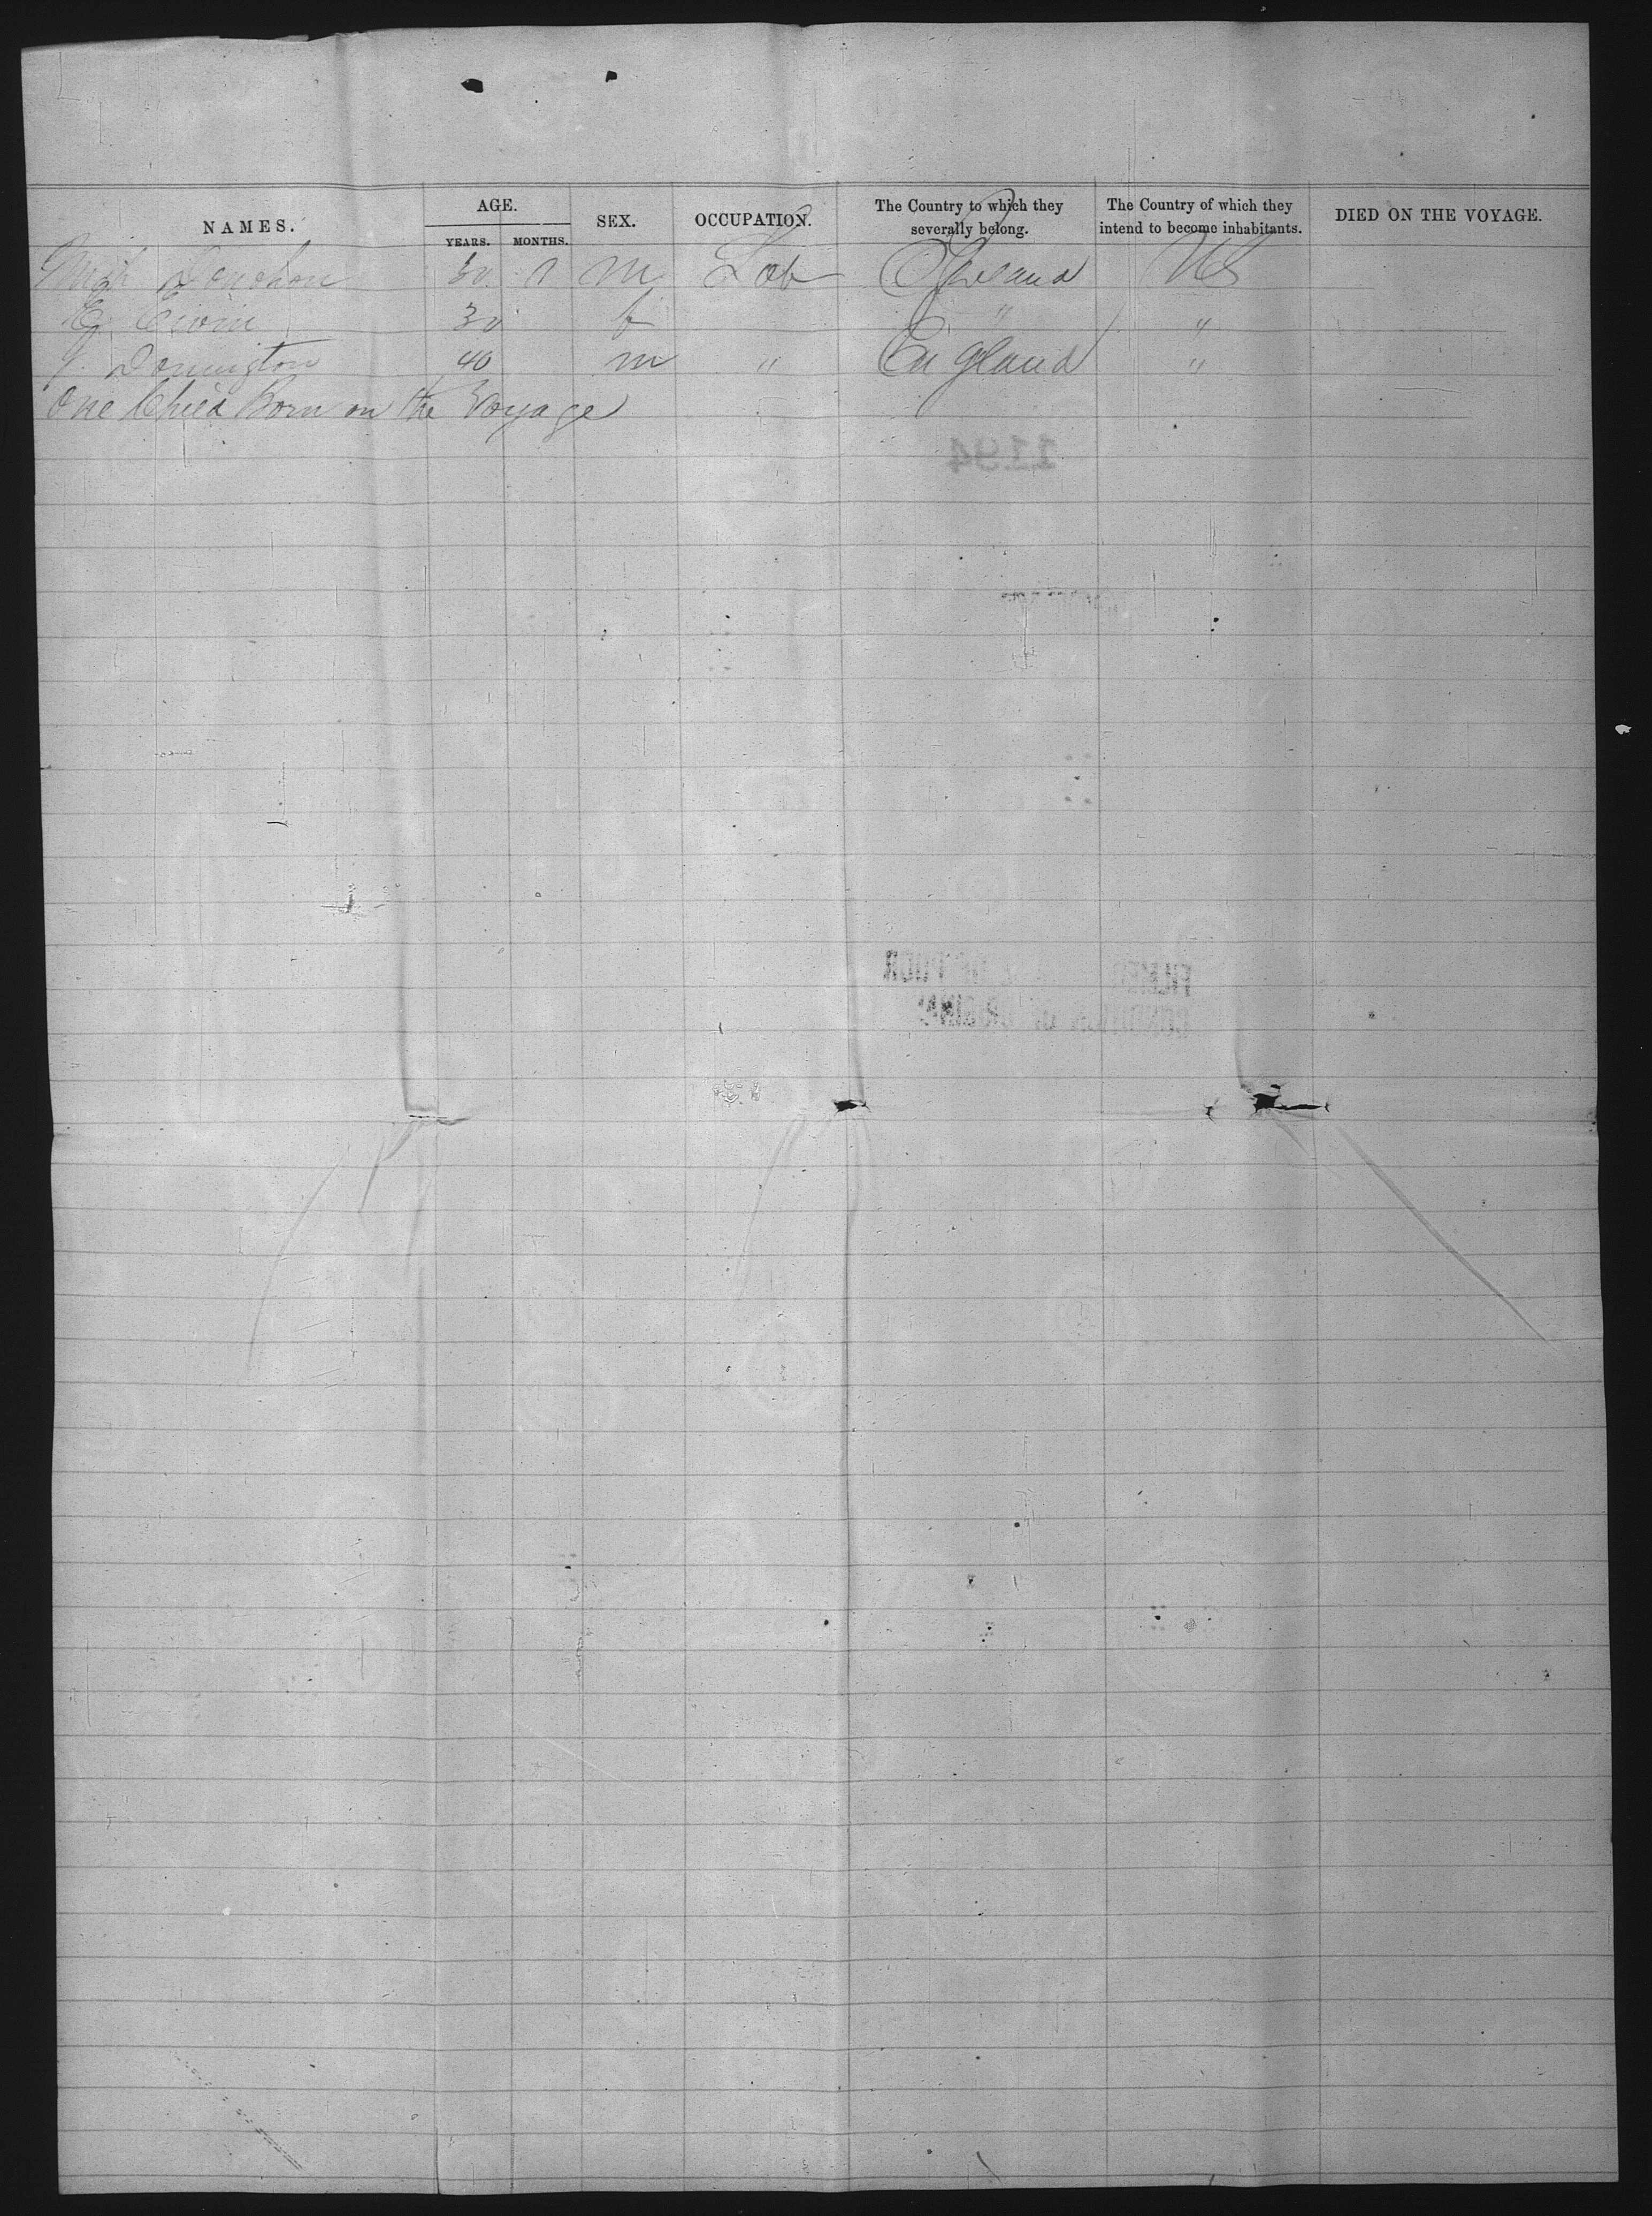 NAMES. AGE. SEX. OCCUPATION. The Country to which they severally belong. The Country of which they intend to become inhabitants. DIED ON THE VOYAGE.
YEARS. MONTHS.
Donohoe 30 m Lab Ireland US
E. 30 f " "
J. Donnington 40 m " England "
One Child Born on the Voyage
1194
CONDITION OF ORIGINAL